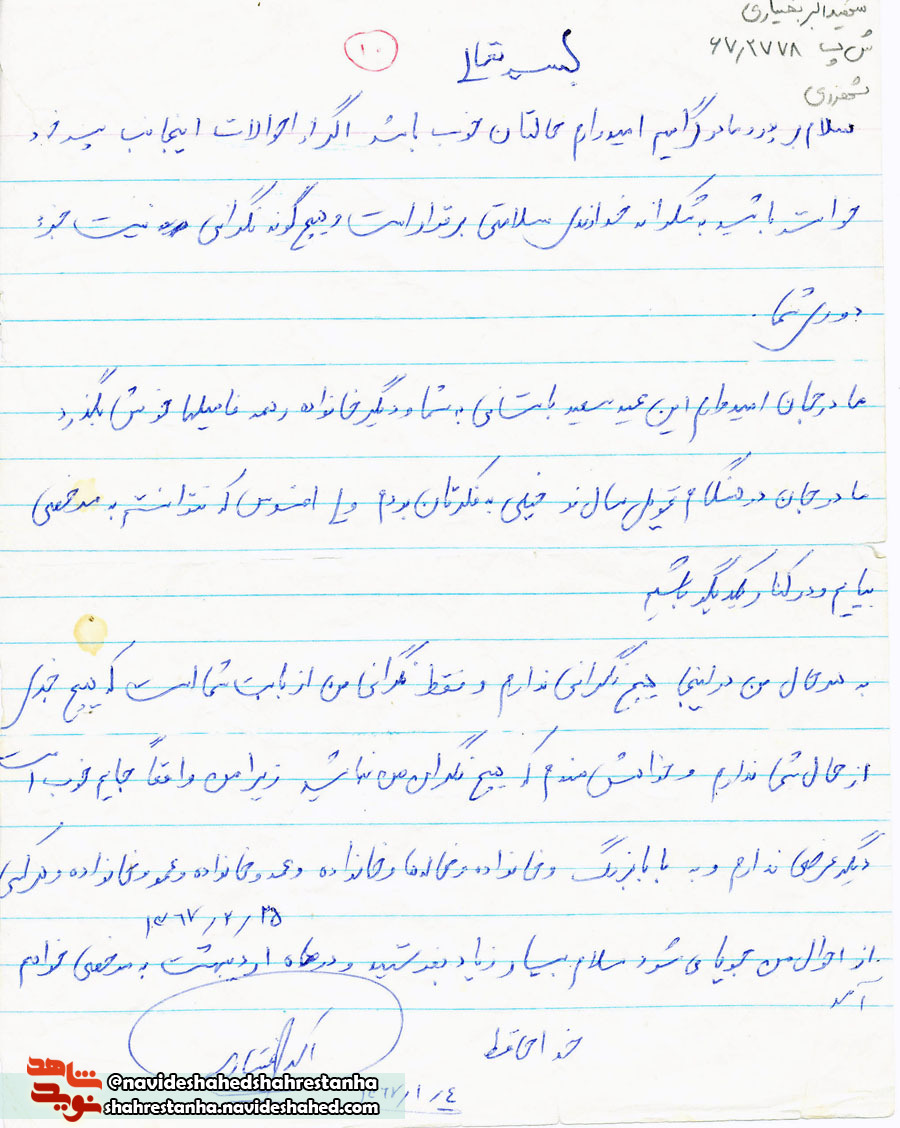 شهید اکبر بختیاری
ش پ ۶۷٫۲۷۷۸
۱۰
بسمه تعالی
سلام بر پدر و مادر گرامیم امیدوارم حالتان خوب باشد اگر از احوالات اینجانب پسر خود
خواسته باشید به شکرانه خداوندی سلامتی برقرار است و هیچ گونه نگرانی نیست جزء
دوری شما.
مادر جان امیدوارم این عید سعید باستانی به شما و دیگر خانواده و همه فامیلها خوش بگذرد
مادر جان در هنگام تحویل سال نو خیلی به فکرتان بودم ولی افسوس که نتوانستم به مرخصی
بیایم و در کنار یکدیگر باشیم
به هر حال من در اینجا هیچ نگرانی ندارم و فقط نگرانی من از بابت شما است که هیچ خبری
از حال شما ندارم و خواهش مندم که هیچ نگران من نباشید زیرا من واقعاً جایم خوب است
دیگر عرضی ندارم و به بابابزرگ و خانواده و خاله‌ها و خانواده و عمه و خانواده و عمو و خانواده و هر کسی
۱۳۶۷/۲/۳۵
از احوال من جویا می شود سلام بسیار زیاد بفرستید و در ماه اردیبهشت به مرخصی خواهم
آمد
خداحافظ
اکبر بختیاری
۱۳۶۷/۱/٤
شاهد
نوید
@navideshahedshahrestanha
shahrestanha.navideshahed.com